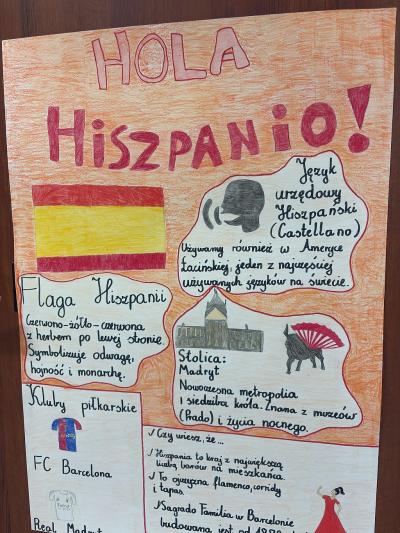 HOLA
HiSZPANiO!
Język
urzędowy
Hiszpański
(Castellano)
Używamy również w Ameryce
Łacińskiej, jeden z najczęściej
używanych języków na świecie.
Flaga Hiszpanii
Czerwono-żółto-czerwona
z herbem po lewej stronie.
Symbolizuje odwagę,
hojność i monarchę.
Stolica:
Madryt
Nowoczesna metropolia
i siedziba króla. Znana z muzeów
(Prado) i życia nocnego.
Kluby piłkarskie
FC Barcelona
Real Madryt
✓ Czy wiesz, że...
✓ Hiszpania to kraj z największą
liczbą barów na mieszkańca.
✓ To ojczyzna flamenco, corridy
i tapas.
✓ Sagrada Familia w Barcelonie
budowana jest od